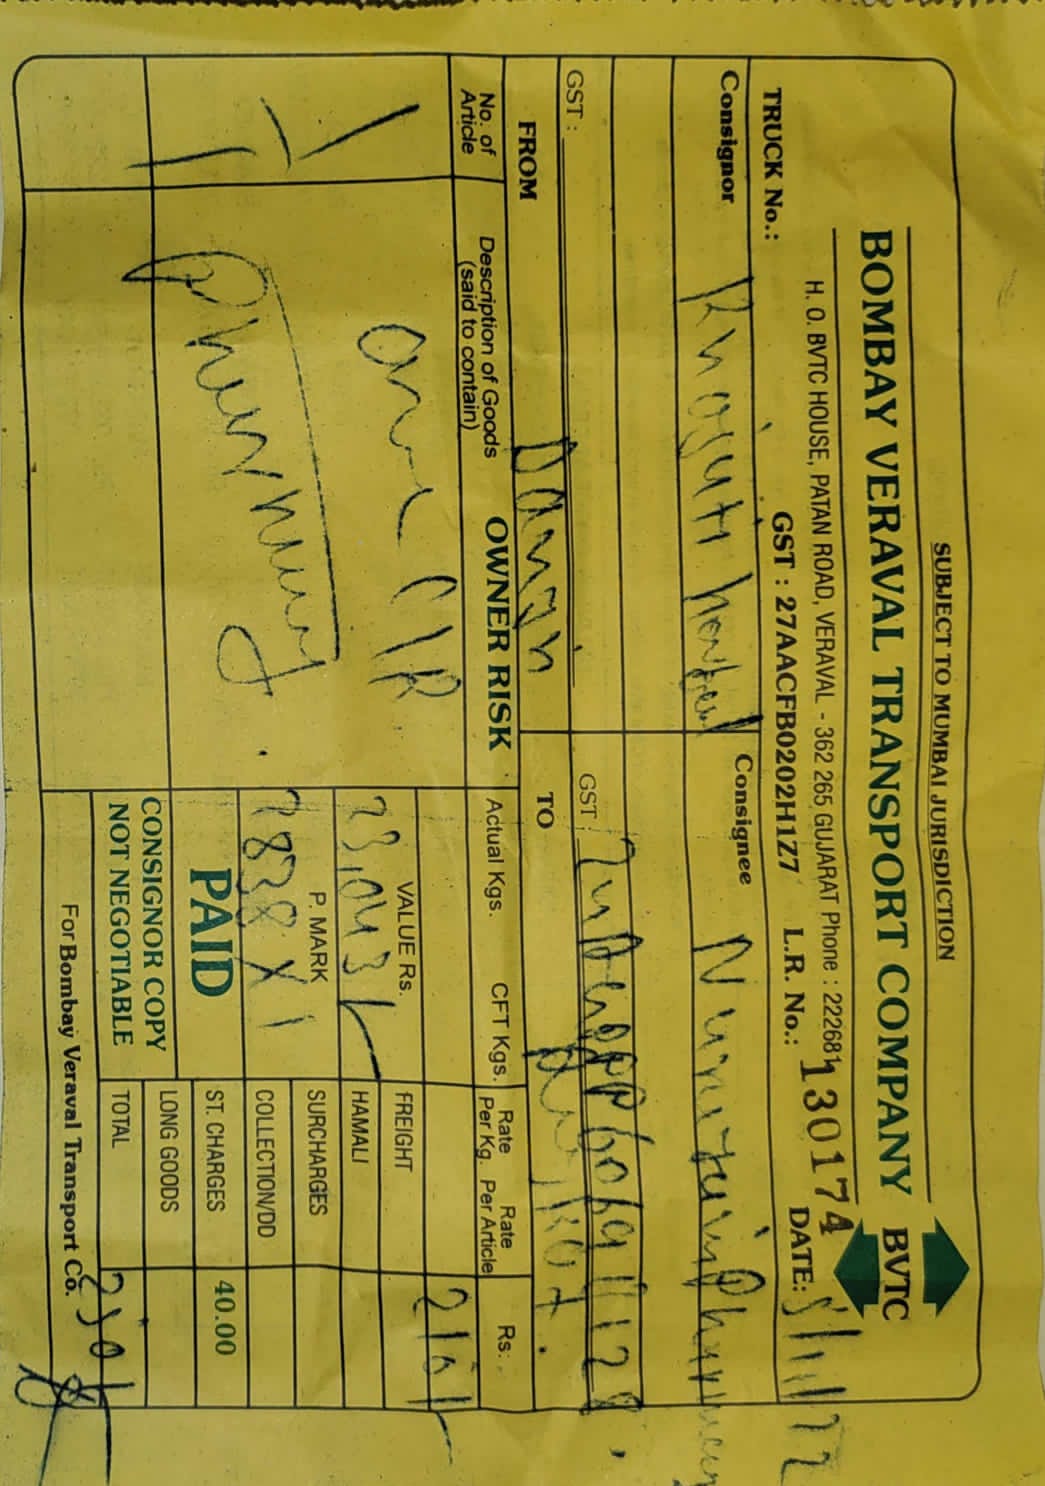 SUBJECT TO MUMBAI JURISDICTION
BOMBAY VERAVAL TRANSPORT COMPANY BVTC
H. O. BVTC HOUSE, PATAN ROAD, VERAVAL - 362 265 GUJARAT Phone : 222681
TRUCK No.: GST : 27AACFB0202H1Z7 L.R. No.: 130174 DATE: 5/11/22
Consignor Consignee
GST : GST :
FROM Daman TO
No. of Article Description of Goods (said to contain) OWNER RISK Actual Kgs. CFT Kgs. Rate Per Kg. Rate Per Article Rs.
1 one C/R
VALUE Rs. FREIGHT 210/-
23,043/- HAMALI
P. MARK SURCHARGES
7838 X 1 COLLECTION/DD
PAID ST. CHARGES 40.00
CONSIGNOR COPY LONG GOODS
NOT NEGOTIABLE TOTAL
For Bombay Veraval Transport Co.